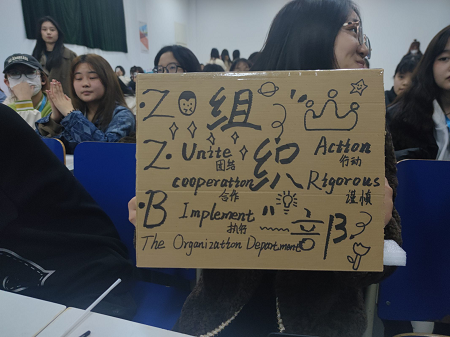 ·Z 组
·Z·Unite 织 Action
团结 行动
cooperation Rigorous
合作 谨慎
·B Implement 部
执行
The Organization Department